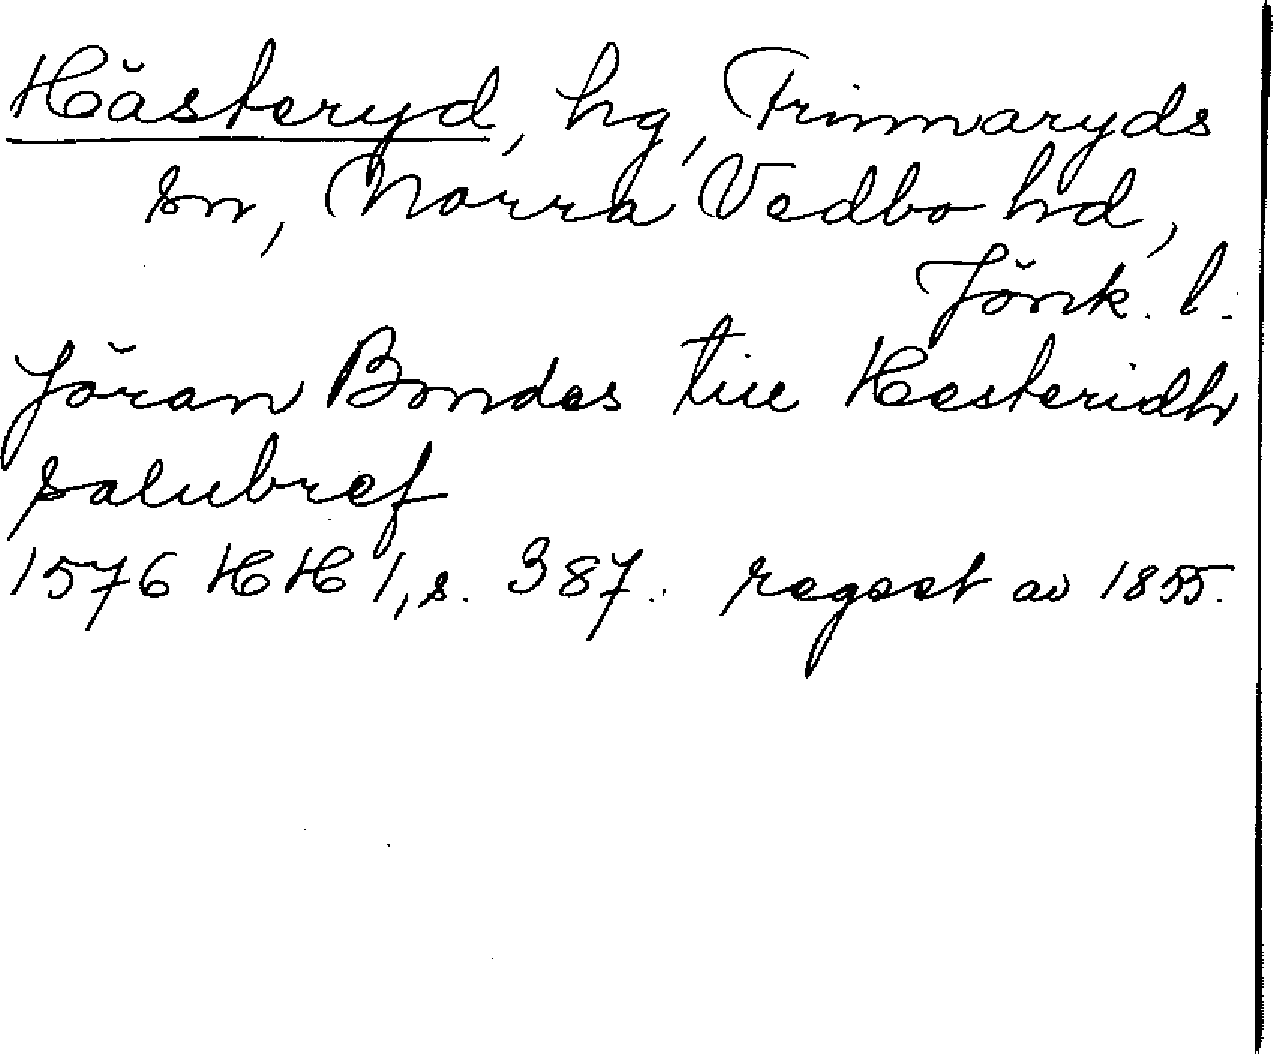 Hästeryd, hg, Frinnaryds
sn, Norra Vedbo hd,
Jönk. l.
Jöran Bondes till Hesteridh
salubref
1576 HH 1, s. 387. regest av 1855.